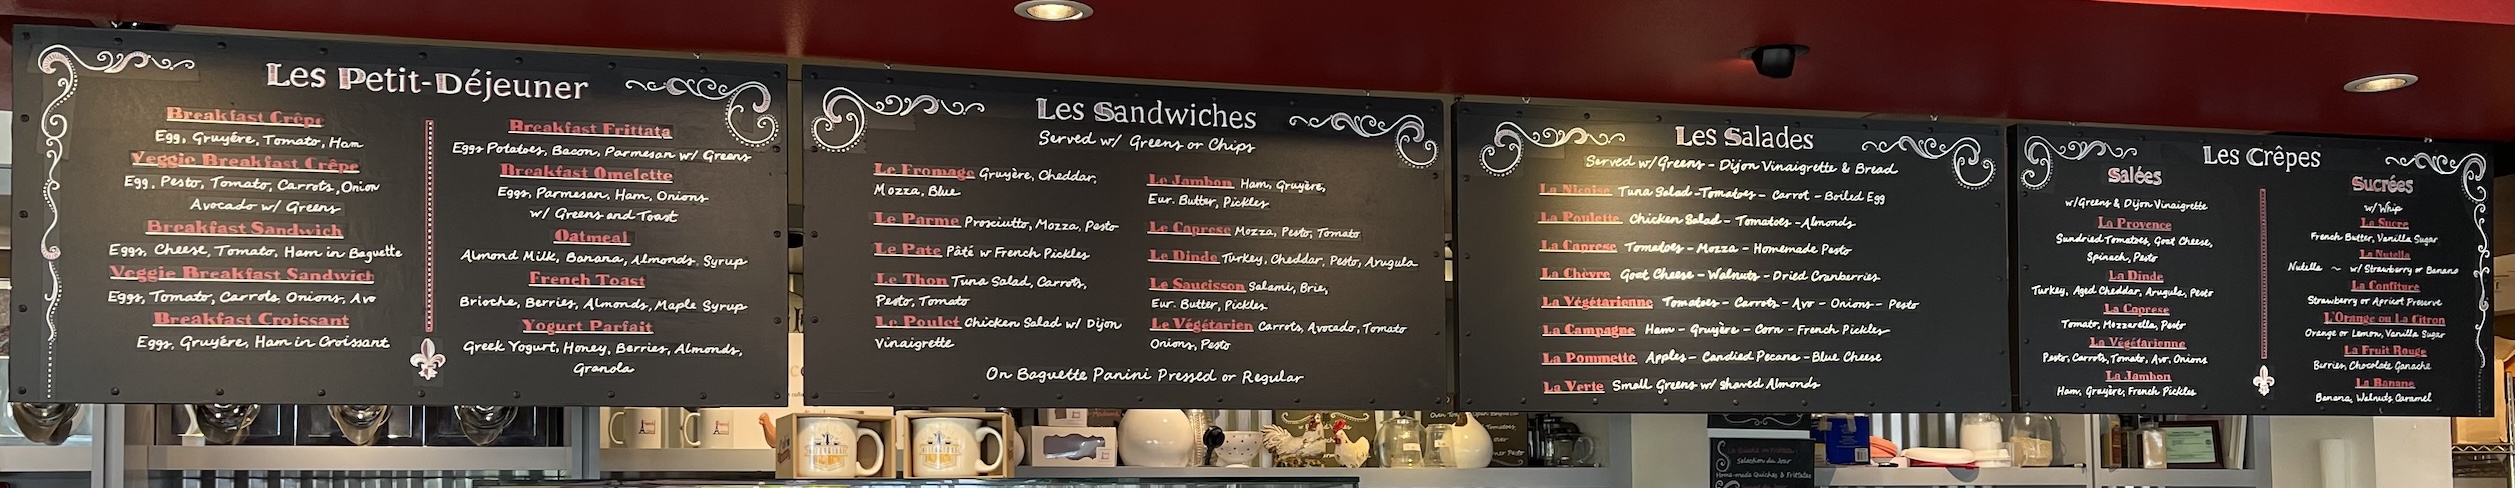 Les Petit-Déjeuner
Breakfast Crêpe
Egg, Gruyére, Tomato, Ham
Veggie Breakfast Crêpe
Egg, Pesto, Tomato, Carrots, Onion
Avocado w/ Greens
Breakfast Sandwich
Eggs, Cheese, Tomato, Ham in Baguette
Veggie Breakfast Sandwich
Eggs, Tomato, Carrots, Onions, Avo
Breakfast Croissant
Eggs, Gruyére, Ham in Croissant
Breakfast Frittata
Eggs Potatoes, Bacon, Parmesan w/ Greens
Breakfast Omelette
Eggs, Parmesan, Ham, Onions
w/ Greens and Toast
Oatmeal
Almond Milk, Banana, Almonds, Syrup
French Toast
Brioche, Berries, Almonds, Maple Syrup
Yogurt Parfait
Greek Yogurt, Honey, Berries, Almonds,
Granola
Les Sandwiches
Served w/ Greens or Chips
Le Fromage Gruyère, Cheddar,
Mozza, Blue
Le Parme Prosciutto, Mozza, Pesto
Le Pate Pâté w French Pickles
Le Thon Tuna Salad, Carrots,
Pesto, Tomato
Le Poulet Chicken Salad w/ Dijon
Vinaigrette
Le Jambon Ham, Gruyère,
Eur. Butter, Pickles
Le Caprese Mozza, Pesto, Tomato
Le Dinde Turkey, Cheddar, Pesto, Arugula
Le Saucisson Salami, Brie,
Eur. Butter, Pickles
Le Végétarien Carrots, Avocado, Tomato
Onions, Pesto
On Baguette Panini Pressed or Regular
Les Salades
Served w/ Greens - Dijon Vinaigrette & Bread
La Niçoise Tuna Salad - Tomatoes - Carrot - Boiled Egg
La Poulette Chicken Salad - Tomatoes - Almonds
La Caprese Tomatoes - Mozza - Homemade Pesto
La Chèvre Goat Cheese - Walnuts - Dried Cranberries
La Végétarienne Tomatoes - Carrots - Avo - Onions - Pesto
La Campagne Ham - Gruyère - Corn - French Pickles
La Pommette Apples - Candied Pecans - Blue Cheese
La Verte Small Greens w/ shaved Almonds
Les Crêpes
Salées
w/Greens & Dijon Vinaigrette
La Provence
Sundried Tomatoes, Goat Cheese,
Spinach, Pesto
La Dinde
Turkey, Aged Cheddar, Arugula, Pesto
La Caprese
Tomato, Mozzarella, Pesto
La Végétarienne
Pesto, Carrots, Tomato, Avo, Onions
La Jambon
Ham, Gruyère, French Pickles
Sucrées
w/ Whip
La Sucre
French Butter, Vanilla Sugar
La Nutella
Nutella ~ w/ Strawberry or Banana
La Confiture
Strawberry or Apricot Preserve
L'Orange ou La Citron
Orange or Lemon, Vanilla Sugar
La Fruit Rouge
Berries, Chocolate Ganache
La Banane
Banana, Walnuts Caramel
Selection du Jour
Home-made Quiches & Frittatas